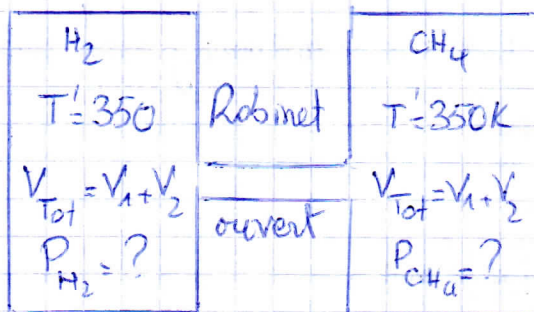 H₂
T'=350
V_Tot = V₁+V₂
P_H₂ = ?
Robinet
ouvert
CH₄
T'=350K
V_Tot = V₁+V₂
P_CH₄ = ?